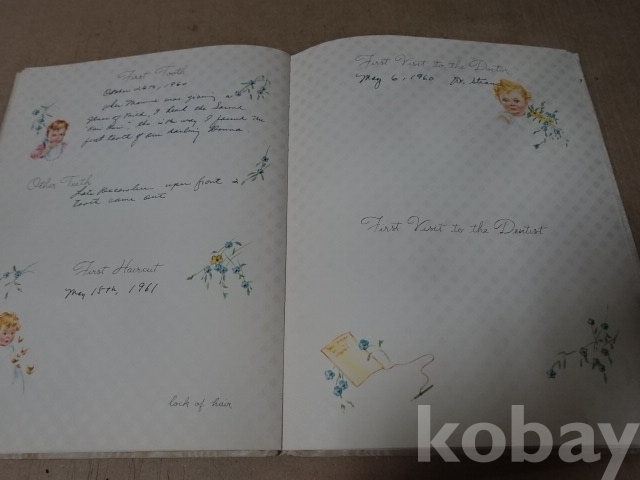 First Tooth
October 26th, 1960
When Mama was giving a
glass of milk, I heard the
"the way I found the
first tooth of our darling Donna
Other Teeth
Late December upper front 2
teeth came out
First Haircut
May 18th, 1961
lock of hair
First Visit to the Doctor
May 6, 1960 Dr.
First Visit to the Dentist
kobay